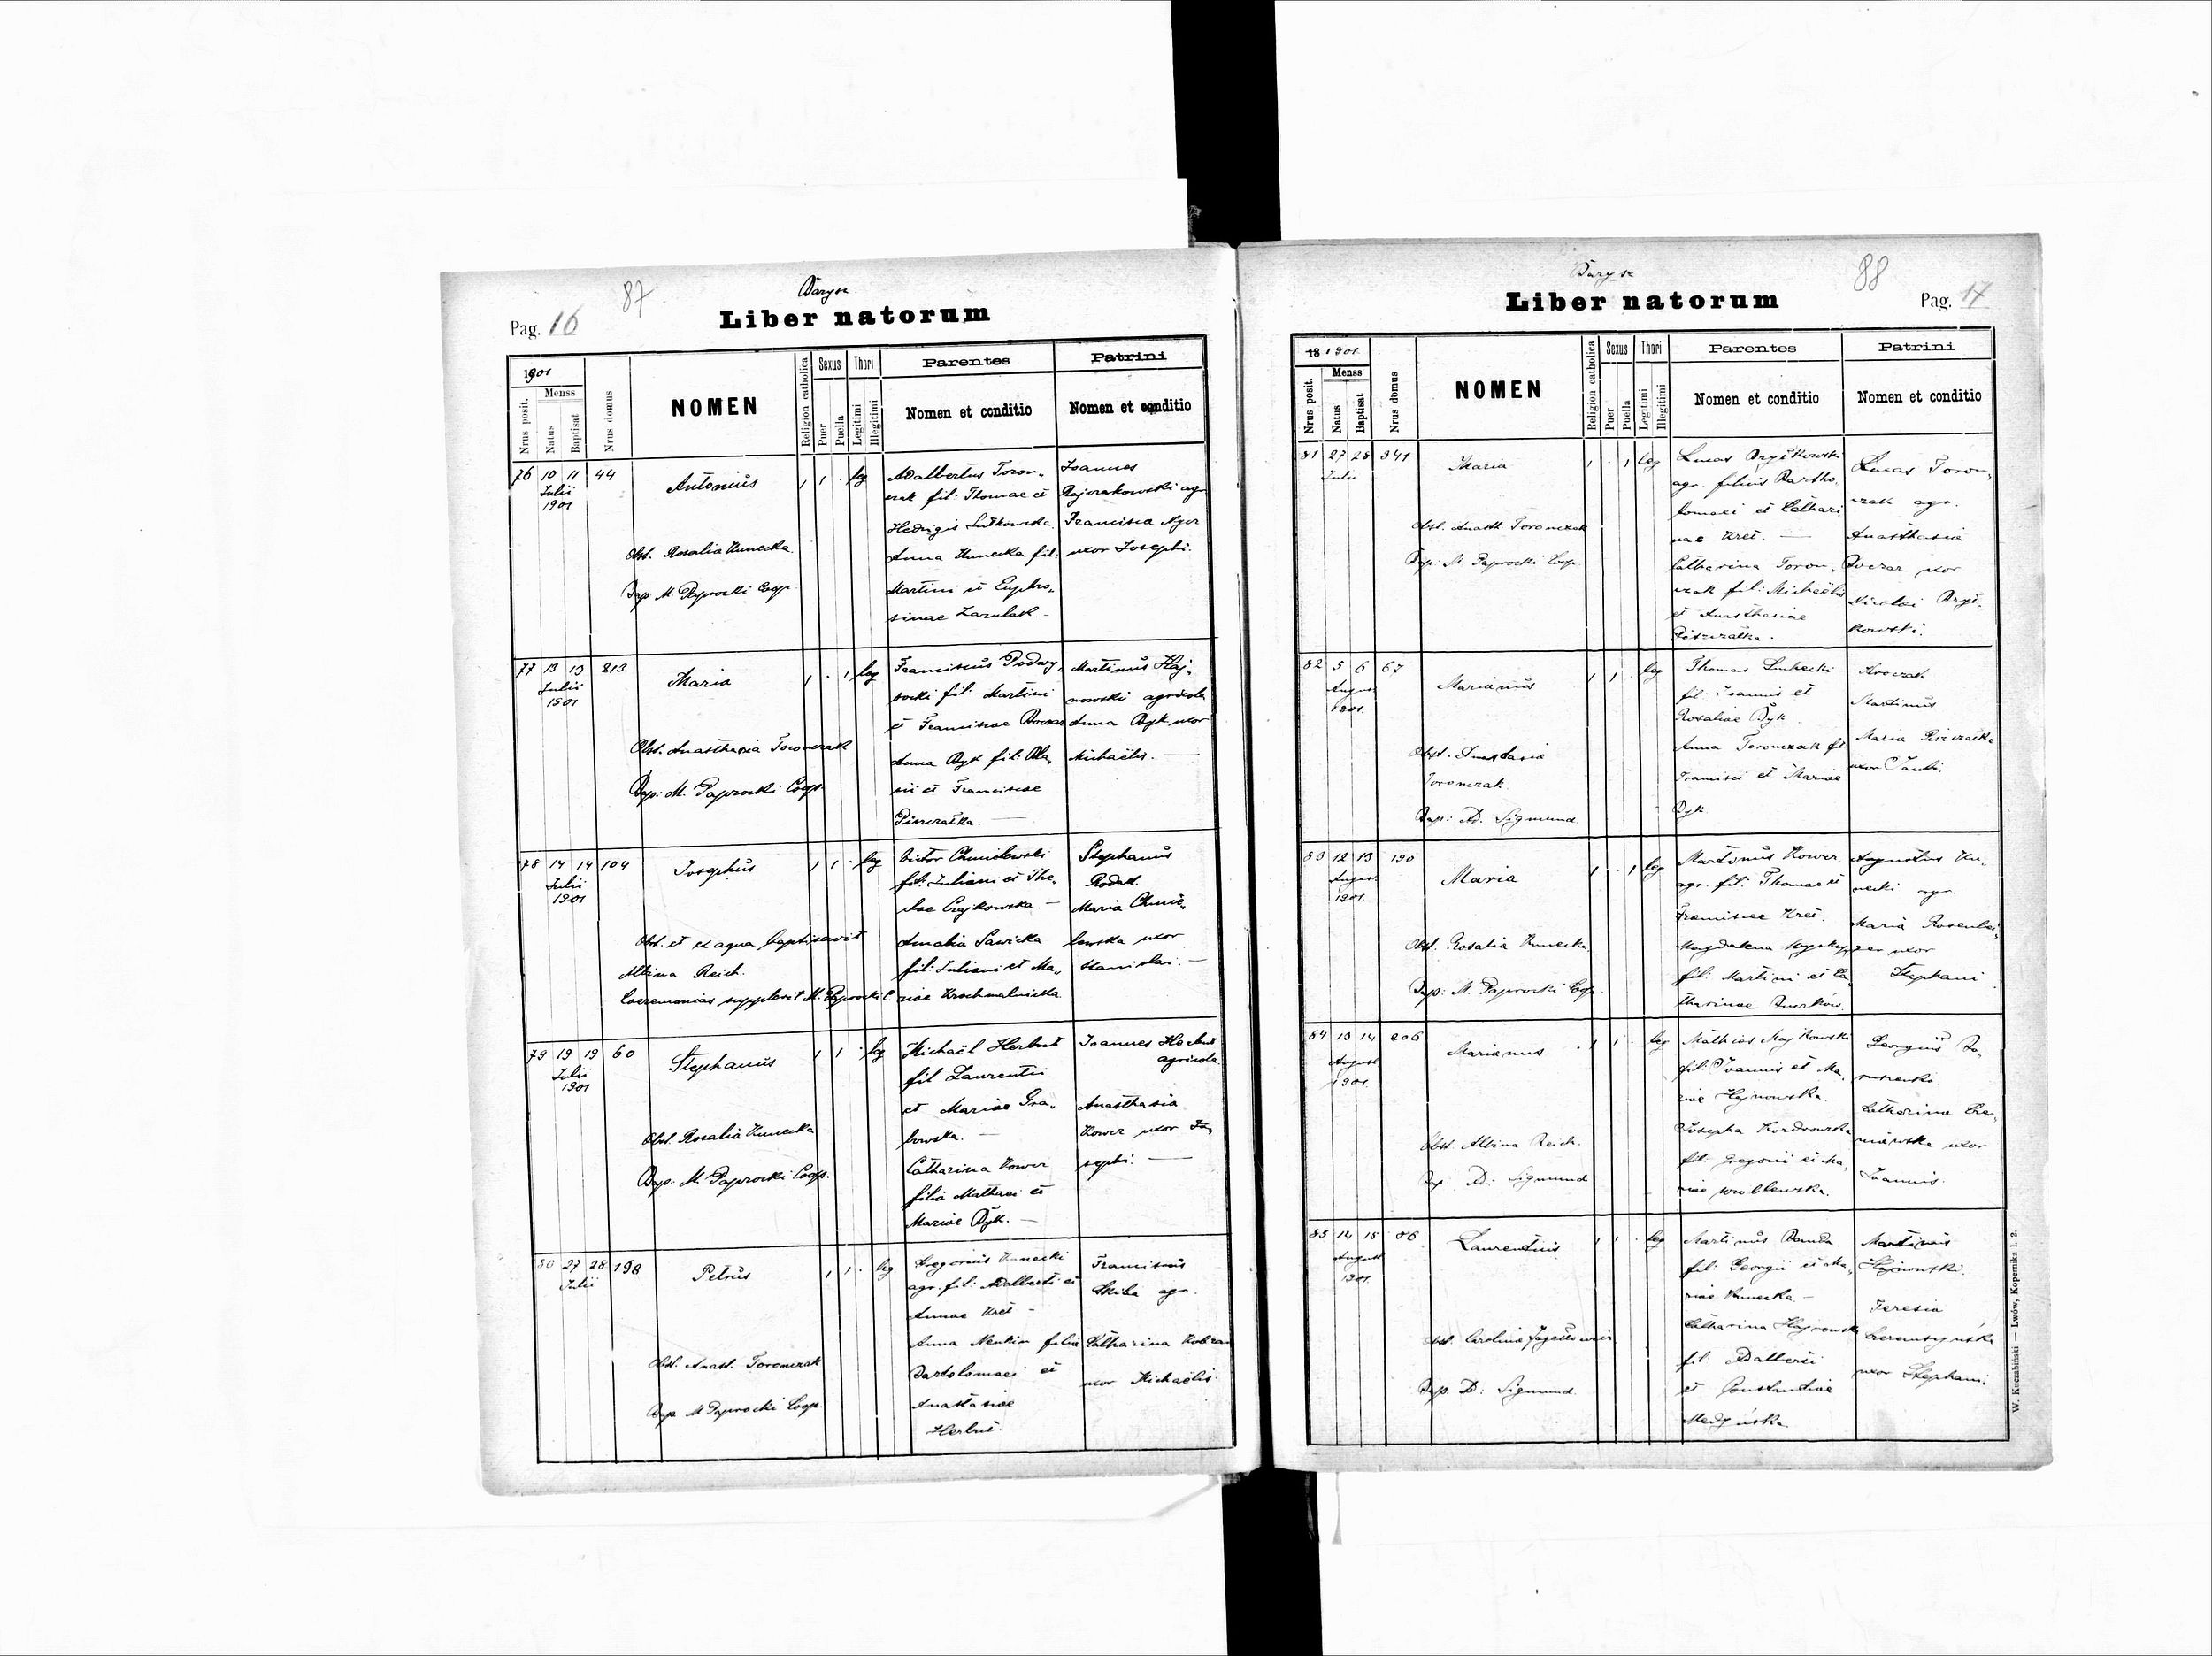 Barysz
87
Pag. 16
Liber natorum
1901
Nrus posit.
Menss
Natus
Baptisat
Nrus domus
NOMEN
Religion catholica
Sexus
Puer
Puella
Thori
Legitimi
Illegitimi
Parentes
Nomen et conditio
Patrini
Nomen et conditio
76 10 11 44
Julii
1901
Antonius
leg
Obst. Rosalia Kunecka
Bap M. Paprocki Coop.
Adalbertus Toron-
czak fil: Thomae et
Hedvigis Sutkowska.
Anna Kunecka fil:
Martini et Euphro-
sinae
Joannes
agr
Francisca
uxor Josephi.
77 13 13 813
Julii
1901
Maria
leg
Obst. Anasthasia Toronczak
Bap: M. Paprocki Coop.
Franciscus
fil: Martini
et Franciscae Boczar
Anna Byk fil: Bla-
sii et Franciscae
Piszczatka.
Martinus Haj-
nowski agricola
Anna Byk uxor
Michaëlis.
78 14 14 104
Julii
1901
Josephus
leg
Obst. et ex aqua baptisavit
Albina Reich.
Caeremonias supplevit M. Paprocki C.
Victor Chmielowski
fil: Juliani et The-
clae Czajkowska.
Amalia Sawicka
fil: Juliani et Ma-
riae Krochmalnicka
Stephanus
Rodak.
Maria Chmie-
lowska uxor
Stanislai.
79 19 19 60
Julii
1901
Stephanus
leg
Obst. Rosalia Kunecka
Bap: M. Paprocki Coop.
Michaël Herbut
fil Laurentii
et Mariae Gra-
bowska.
Catharina Kower
filia Mathaei et
Mariae Byk.
Joannes Herbut
agricola
Anasthasia
Kower uxor Jo-
sephi.
80 27 28 198
Julii
Petrus
leg
Obst. Anast. Toronczak
Bap M Paprocki Coop.
Gregorius Kunecki
agr. fil: Adalberti et
Annae Kret
Anna filia
Bartolomaei et
Anastasiae
Herbut.
Franciscus
Skiba agr.
Catharina
uxor Michaëlis
Barysz
88
Liber natorum
Pag. 17
18 1901.
Nrus posit.
Menss
Natus
Baptisat
Nrus domus
NOMEN
Religion catholica
Sexus
Puer
Puella
Thori
Legitimi
Illegitimi
Parentes
Nomen et conditio
Patrini
Nomen et conditio
81 27 28 341
Julii
Maria
leg
Obst. Anasth Toronczak
Bap: M. Paprocki Coop.
Lucas Brytkowski
agr. filius Bartho-
lomaei et Cathari
nae Kret.
Catharina Toron-
czak fil: Michaëlis
et Anasthasiae
Piszczatka.
Lucas Toron-
czak agr.
Anasthasia
Boczar uxor
Nicolai Bryt-
kowski.
82 5 6 67
August
1901.
Marianus
leg
Obst. Anastasia
Toronczak.
Bap: Ad. Sigmund.
Thomas
fil: Joannis et
Rosaliae Byk
Anna Toronczak fil
Francisci et Mariae
Byk
Kroczak
Martinus
Maria Piszczatka
uxor Pauli.
83 12 13 190
August
1901.
Maria
leg
Obst. Rosalia Kunecka
Bap: M. Paprocki Coop.
Martinus Kower
agr. fil: Thomae et
Franciscae Kret.
Magdalena
fil: Martini et Ca
tharinae
Augustus Ku-
necki agr.
Maria
uxor
Stephani
84 13 14 206
August
1901.
Marianus
leg
Obst Albina Reich.
Bap Ad: Sigmund
Mathias Majkowski
fil: Joannis et Ma-
riae Hajnowska.
Josepha
fil: Gregorii et Ma-
riae Wroblewska.
Georgius
Catharina
uxor
Joannis.
85 14 15 86
August
1901.
Laurentius
leg
Obst. Carolina
Bap. Ad: Sigmund.
Martinus
fil: Georgii et Ma-
riae Kunecka
Catharina Hajnowska
fil: Adalberti
et Constantiae
Martinus
Hajnowski.
Teresia
uxor Stephani
W. Kuczabiński — Lwów, Kopernika l. 2.